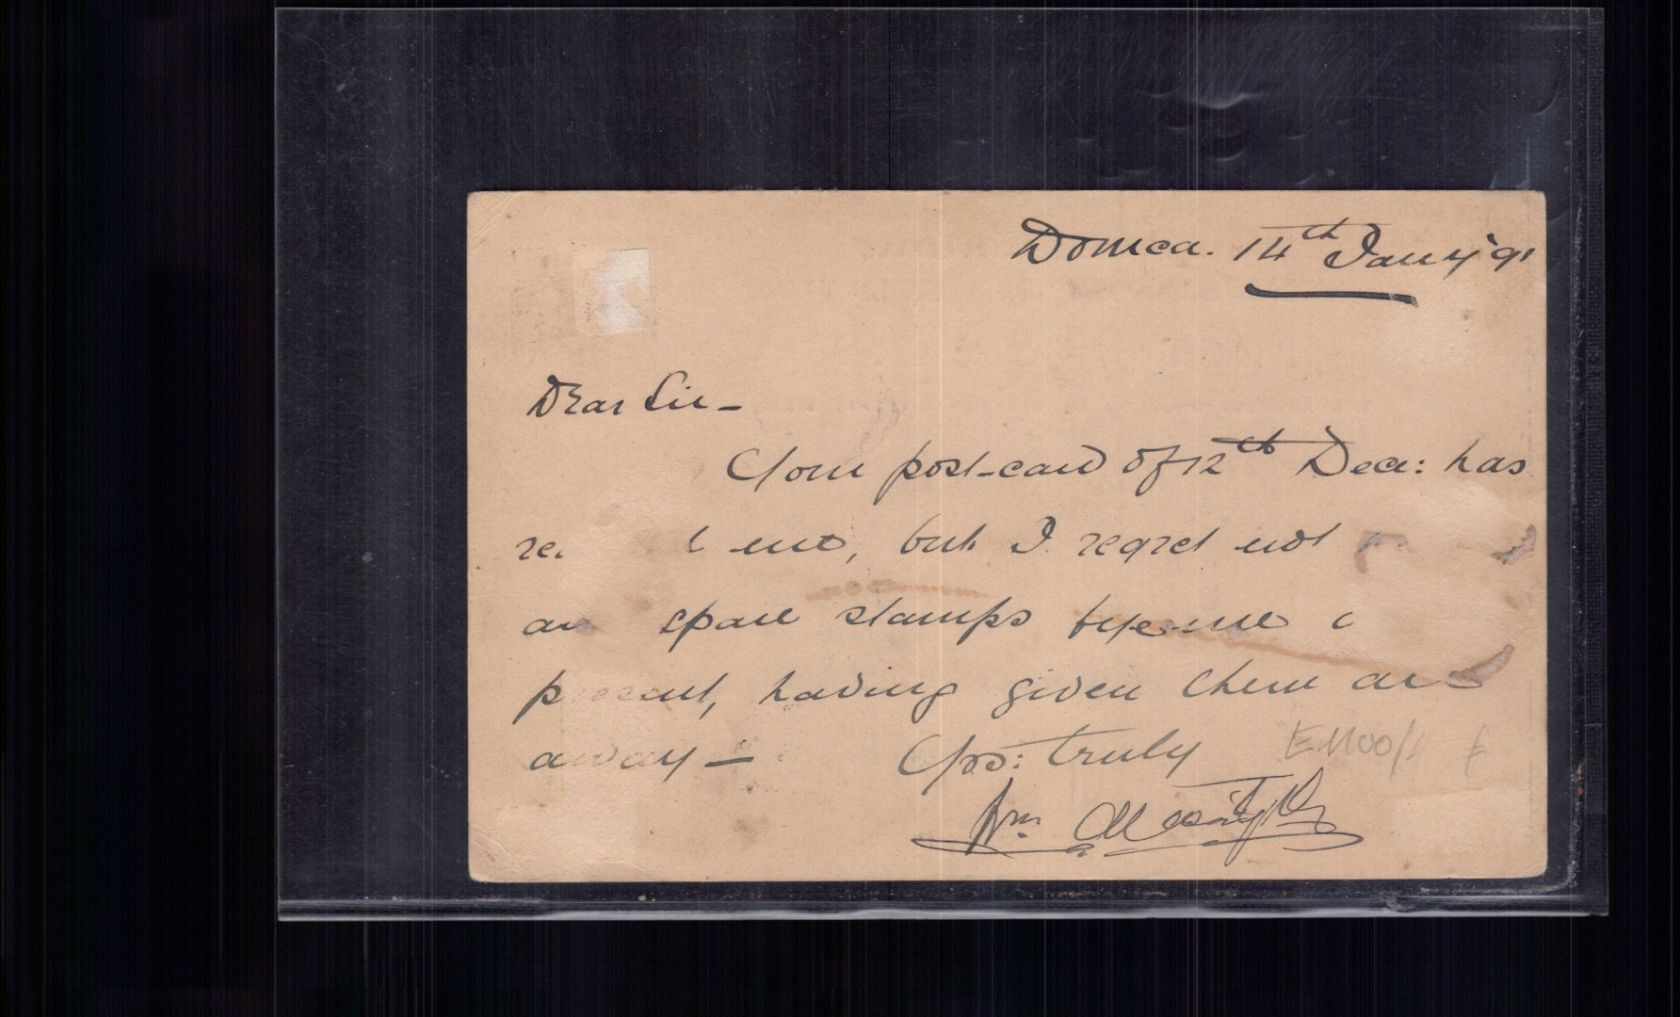 Domca. 14th Jany '91
Dear Sir -
Your post-card of 12th Decr: has
me, but I regret not
spare stamps before me
present, having given them
away - Yrs: truly
Wm.